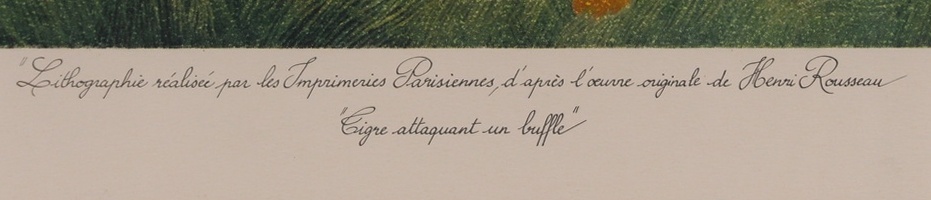 "Lithographie réalisée par les Imprimeries Parisiennes, d'après l'œuvre originale de Henri Rousseau
"Tigre attaquant un buffle"